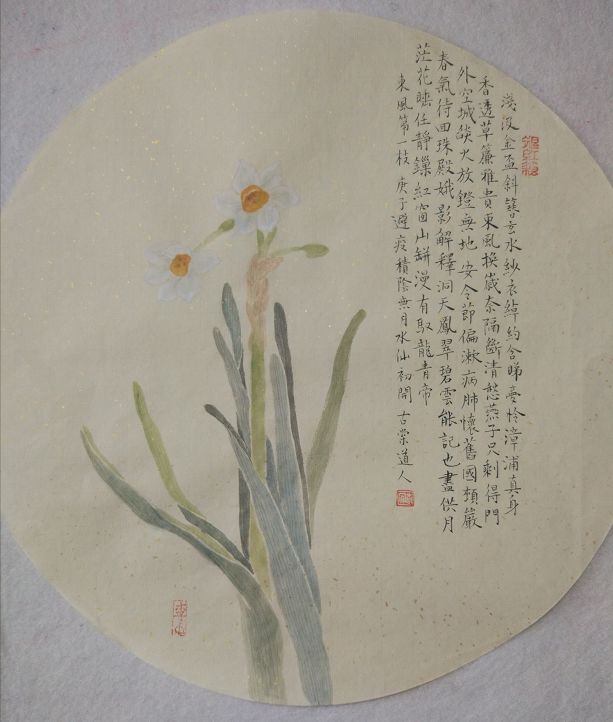 淺汲金盃斜簪玄水紗衣綽約含睇怜漳浦真身
香透草簾雅貴東風換歲奈隔斷清愁燕子只剩得門
外空城燄火放鐙無地安令節偏漱病肺懷舊國頻嚴
春氣待回珠殿娥影解釋洞天鳳翠碧雲能記也盡供月
茫花任靜鏁紅窗山缾漫有馭龍青帝
東風第一枝 庚子避疫積陰無月水仙初開 古棠道人